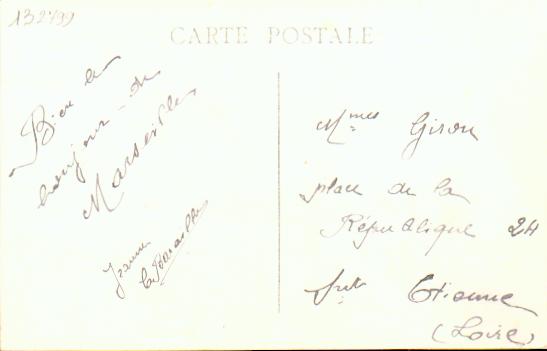 132499
CARTE POSTALE
Bien le
bonjour de
Marseille
Jeanne
Mmes Giron
place de la
République 24
St Etienne
(Loire)